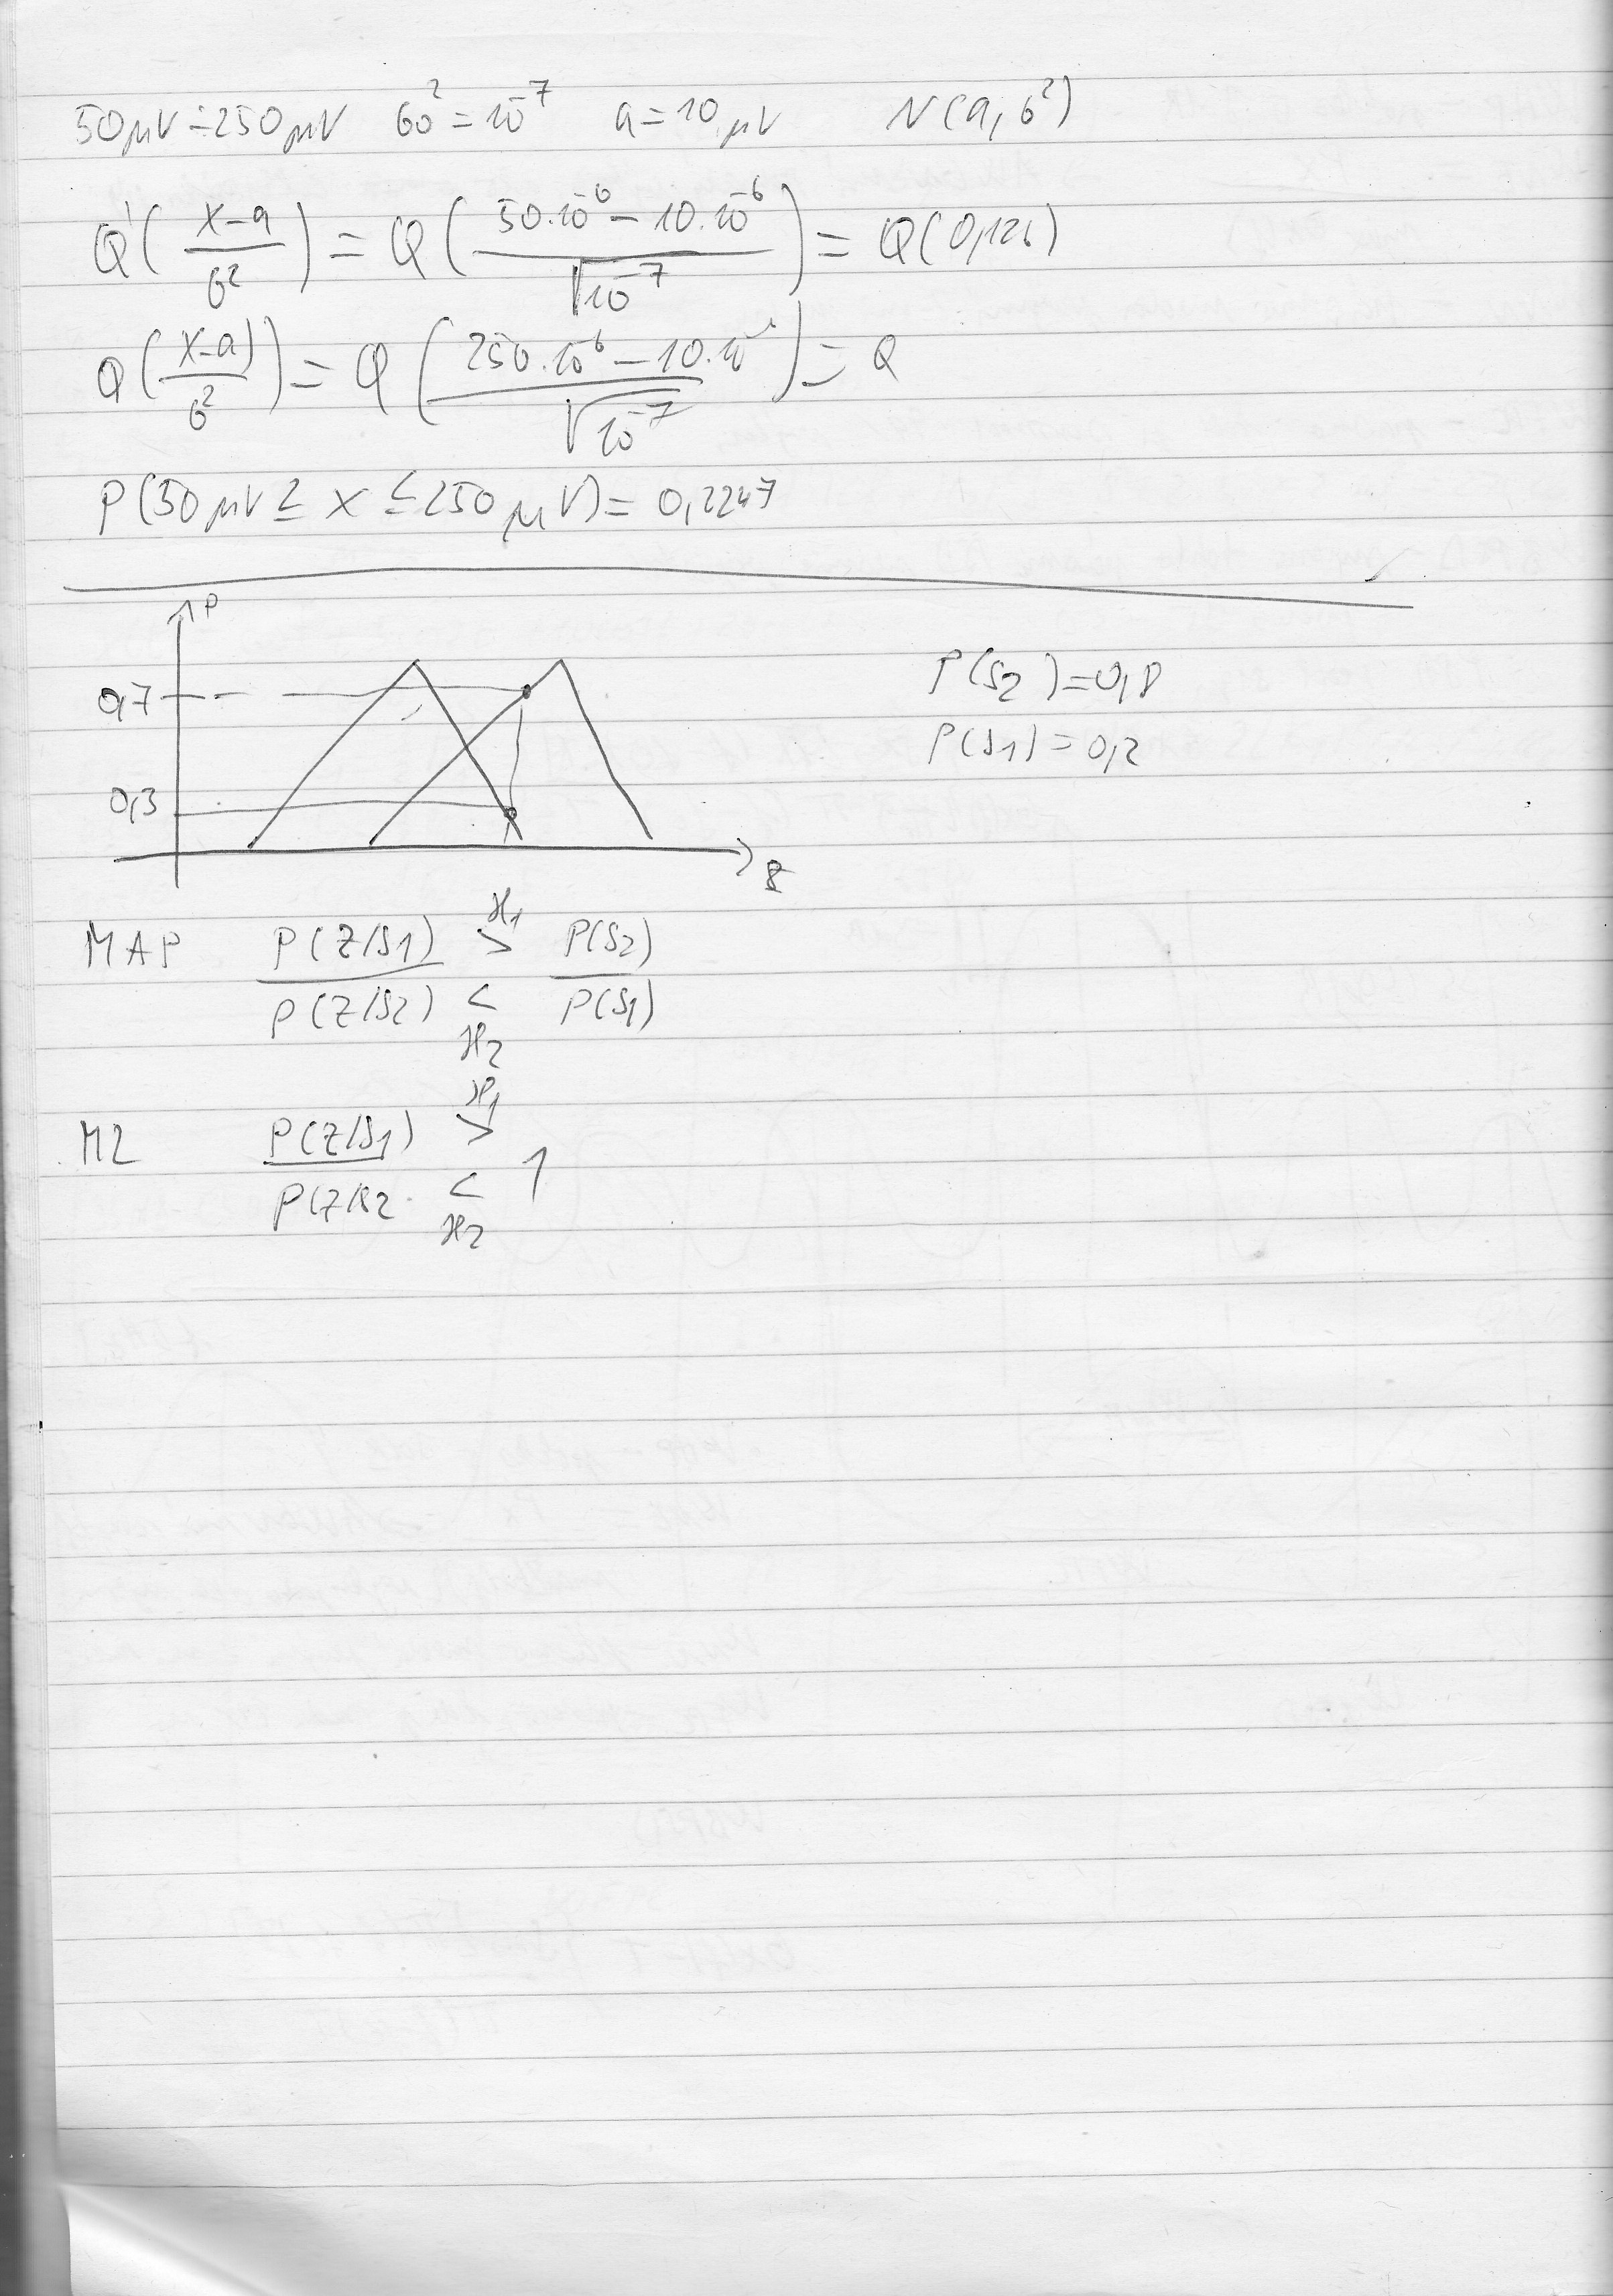 50μV÷250μV 6o²=10⁻⁷ a=10μV N(a,6²)
Q(x-a/6²) = Q(50.10⁻⁶-10.10⁻⁶/√10⁻⁷) = Q(0,126)
Q(x-a/6²) = Q(250.10⁻⁶-10.10⁻⁶/√10⁻⁷) = Q
P(50μV ≤ x ≤ 250μV) = 0,2247
P
0,7
0,3
z
P(s2)=0,8
P(s1)=0,2
MAP P(z/s1)/P(z/s2) ℋ1 > < ℋ2 P(s2)/P(s1)
ML P(z/s1)/P(z/s2 ℋ1 > < ℋ2 1